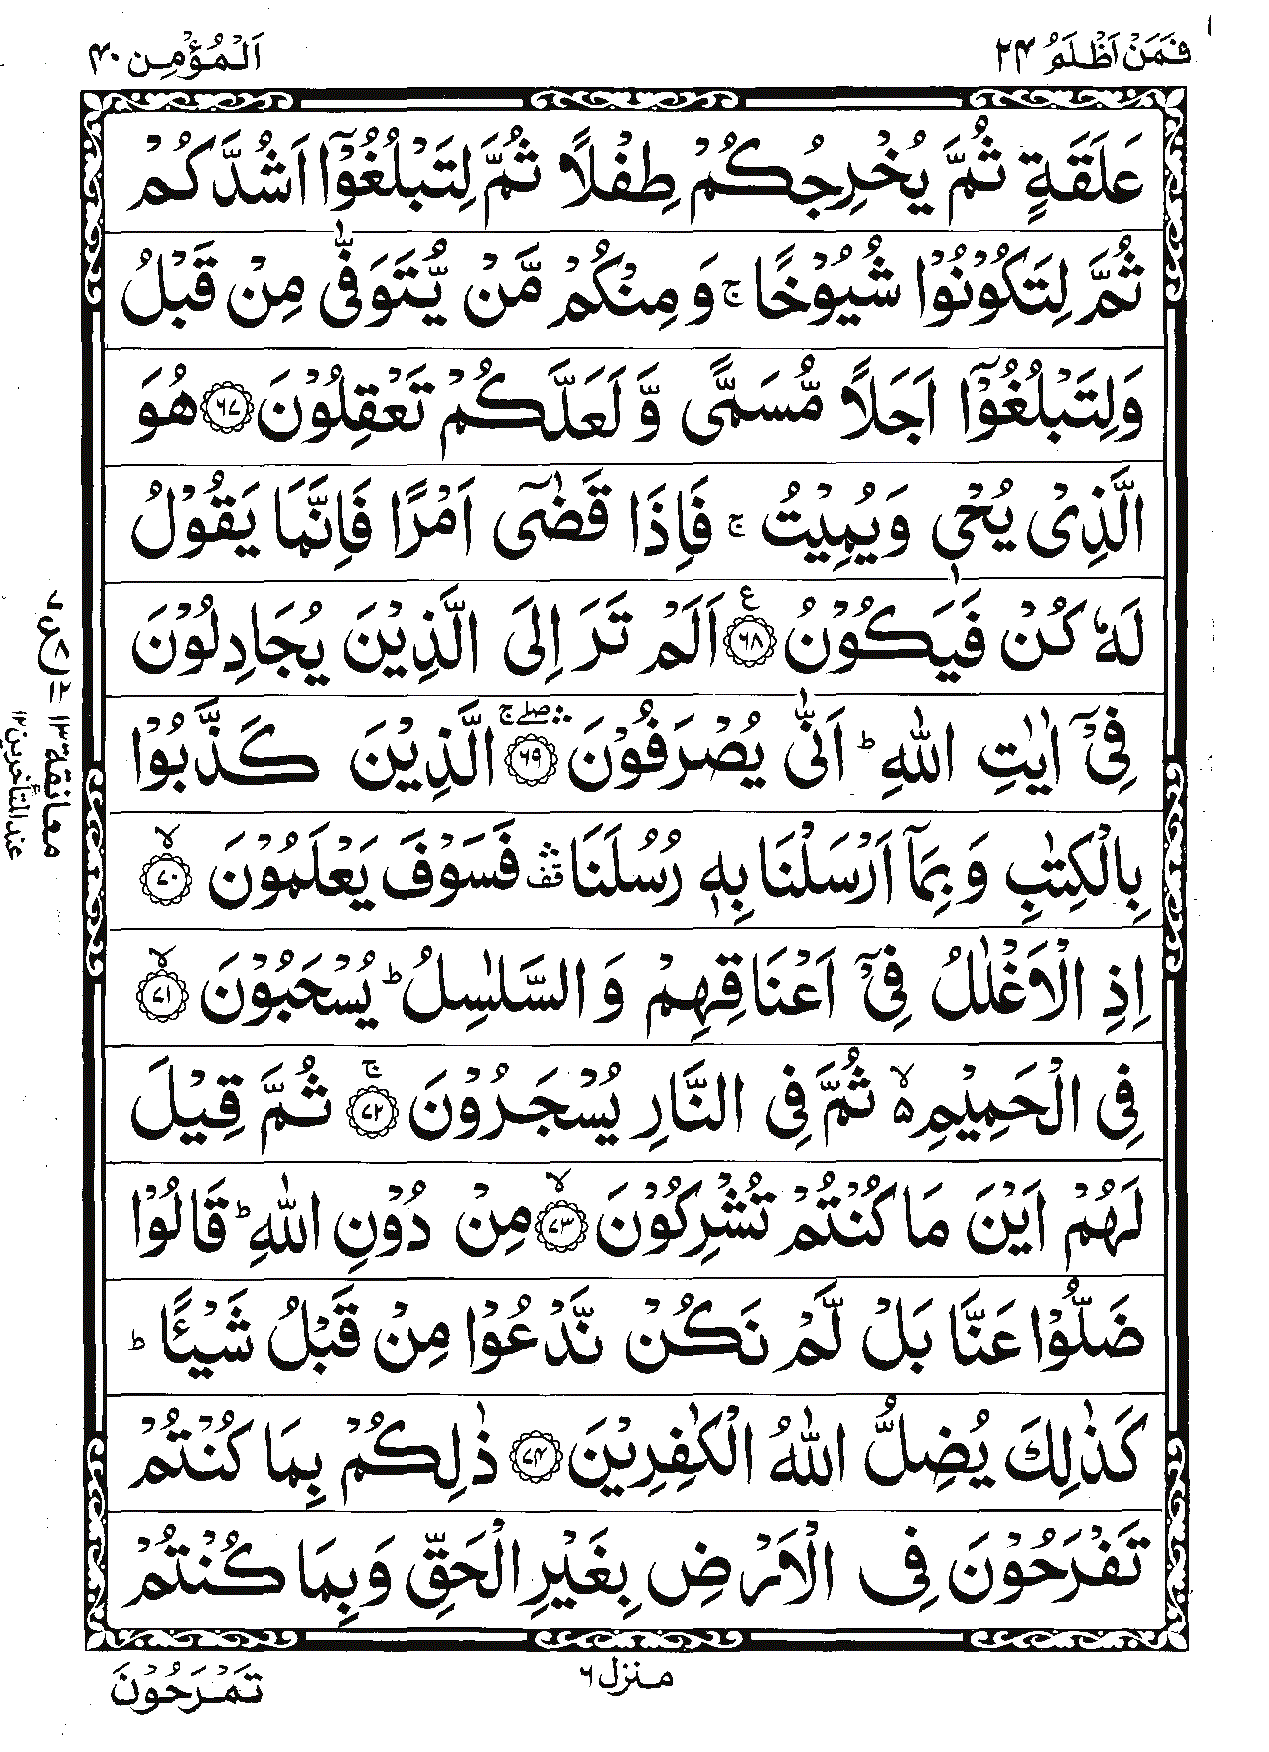 فَمَنْ اَظْلَمُ ۲۴
اَلْمُؤْمِن ۴۰
عَلَقَةٍ ثُمَّ يُخْرِجُكُمْ طِفْلًا ثُمَّ لِتَبْلُغُوْۤا اَشُدَّكُمْ
ثُمَّ لِتَكُوْنُوْا شُيُوْخًا ۚ وَ مِنْكُمْ مَّنْ يُّتَوَفّٰى مِنْ قَبْلُ
وَلِتَبْلُغُوْۤا اَجَلًا مُّسَمًّى وَّ لَعَلَّكُمْ تَعْقِلُوْنَ ﴿۶۷﴾ هُوَ
الَّذِىْ يُحْىٖ وَيُمِيْتُ ۚ فَاِذَا قَضٰۤى اَمْرًا فَاِنَّمَا يَقُوْلُ
لَهٗ كُنْ فَيَكُوْنُ ﴿۶۸﴾ ع اَلَمْ تَرَ اِلَى الَّذِيْنَ يُجَادِلُوْنَ
فِىْۤ اٰيٰتِ اللّٰهِ ؕ اَنّٰى يُصْرَفُوْنَ ﴿۶۹﴾ ۛۖۚ الَّذِيْنَ كَذَّبُوْا
بِالْكِتٰبِ وَ بِمَاۤ اَرْسَلْنَا بِهٖ رُسُلَنَا ۛقف فَسَوْفَ يَعْلَمُوْنَ ﴿۷۰﴾ ۙ
اِذِ الْاَغْلٰلُ فِىْۤ اَعْنَاقِهِمْ وَ السَّلٰسِلُ ؕ يُسْحَبُوْنَ ﴿۷۱﴾ ۙ
فِى الْحَمِيْمِ ۵ ۙ ثُمَّ فِى النَّارِ يُسْجَرُوْنَ ﴿۷۲﴾ ۚ ثُمَّ قِيْلَ
لَهُمْ اَيْنَ مَا كُنْتُمْ تُشْرِكُوْنَ ﴿۷۳﴾ ۙ مِنْ دُوْنِ اللّٰهِ ؕ قَالُوْا
ضَلُّوْا عَنَّا بَلْ لَّمْ نَكُنْ نَّدْعُوْا مِنْ قَبْلُ شَيْـًٔا ؕ
كَذٰلِكَ يُضِلُّ اللّٰهُ الْكٰفِرِيْنَ ﴿۷۴﴾ ذٰلِكُمْ بِمَا كُنْتُمْ
تَفْرَحُوْنَ فِى الْاَرْضِ بِغَيْرِ الْحَقِّ وَ بِمَا كُنْتُمْ
منزل ۶
تَمْرَحُوْنَ
۷ ع ۸ ۱۲
معانقة ۱۳
عند المتأخرين ۱۲